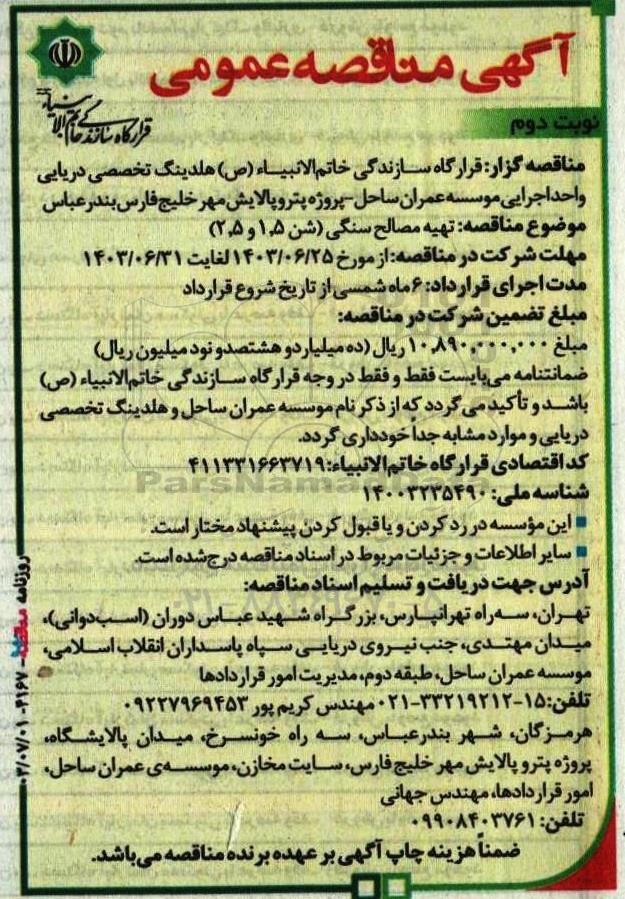 آگهی مناقصه عمومی
قرارگاه سازندگی خاتم الانبیاء
نوبت دوم
مناقصه گزار: قرارگاه سازندگی خاتم‌الانبیاء (ص) هلدینگ تخصصی دریایی
واحد اجرایی موسسه عمران ساحل-پروژه پترو پالایش مهر خلیج فارس بندرعباس
موضوع مناقصه: تهیه مصالح سنگی (شن ۱,۵ و ۲,۵)
مهلت شرکت در مناقصه: از مورخ ۱۴۰۳/۰۶/۲۵ لغایت ۱۴۰۳/۰۶/۳۱
مدت اجرای قرارداد: ۶ ماه شمسی از تاریخ شروع قرارداد
مبلغ تضمین شرکت در مناقصه:
مبلغ ۱۰,۸۹۰,۰۰۰,۰۰۰ ریال (ده میلیارد و هشتصدو نود میلیون ریال)
ضمانتنامه می‌بایست فقط و فقط در وجه قرارگاه سازندگی خاتم‌الانبیاء (ص)
باشد و تأکید می‌گردد که از ذکر نام موسسه عمران ساحل و هلدینگ تخصصی
دریایی و موارد مشابه جداً خودداری گردد.
کد اقتصادی قرارگاه خاتم‌الانبیاء: ۴۱۱۳۳۱۶۶۳۷۱۹
شناسه ملی: ۱۴۰۰۳۲۳۵۴۹۰
ParsNamadData
■ این مؤسسه در رد کردن و یا قبول کردن پیشنهاد مختار است.
■ سایر اطلاعات و جزئیات مربوط در اسناد مناقصه درج شده است.
آدرس جهت دریافت و تسلیم اسناد مناقصه:
تهران، سه‌راه تهرانپارس، بزرگراه شهید عباس دوران (اسب‌دوانی)،
میدان مهتدی، جنب نیروی دریایی سپاه پاسداران انقلاب اسلامی،
موسسه عمران ساحل، طبقه دوم، مدیریت امور قراردادها
تلفن: ۱۵-۳۳۲۱۹۲۱۲-۰۲۱ مهندس کریم پور ۰۹۲۲۷۹۶۹۴۵۳
هرمزگان، شهر بندرعباس، سه راه خونسرخ، میدان پالایشگاه،
پروژه پترو پالایش مهر خلیج فارس، سایت مخازن، موسسه‌ی عمران ساحل،
امور قراردادها، مهندس جهانی
تلفن: ۰۹۹۰۸۴۰۳۷۶۱
ضمناً هزینه چاپ آگهی بر عهده برنده مناقصه می‌باشد.
روزنامه مناقصه - ۴۱۶۷- ۰۳/۰۷/۰۱